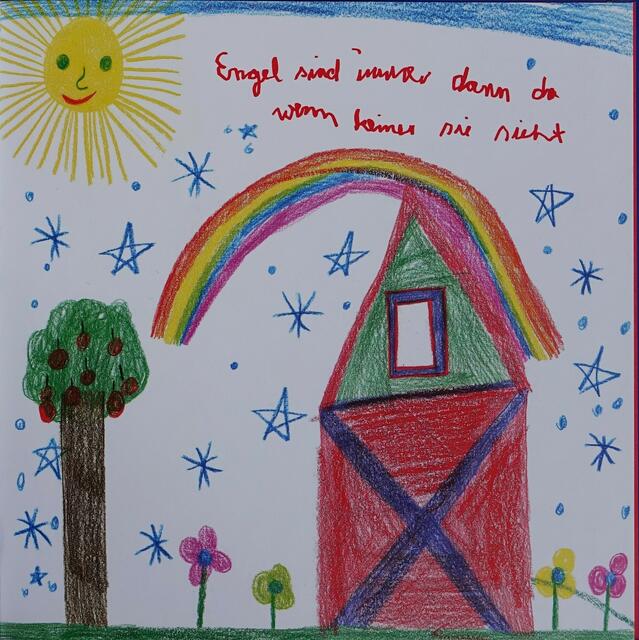 Engel sind immer dann da
wenn keiner sie sieht